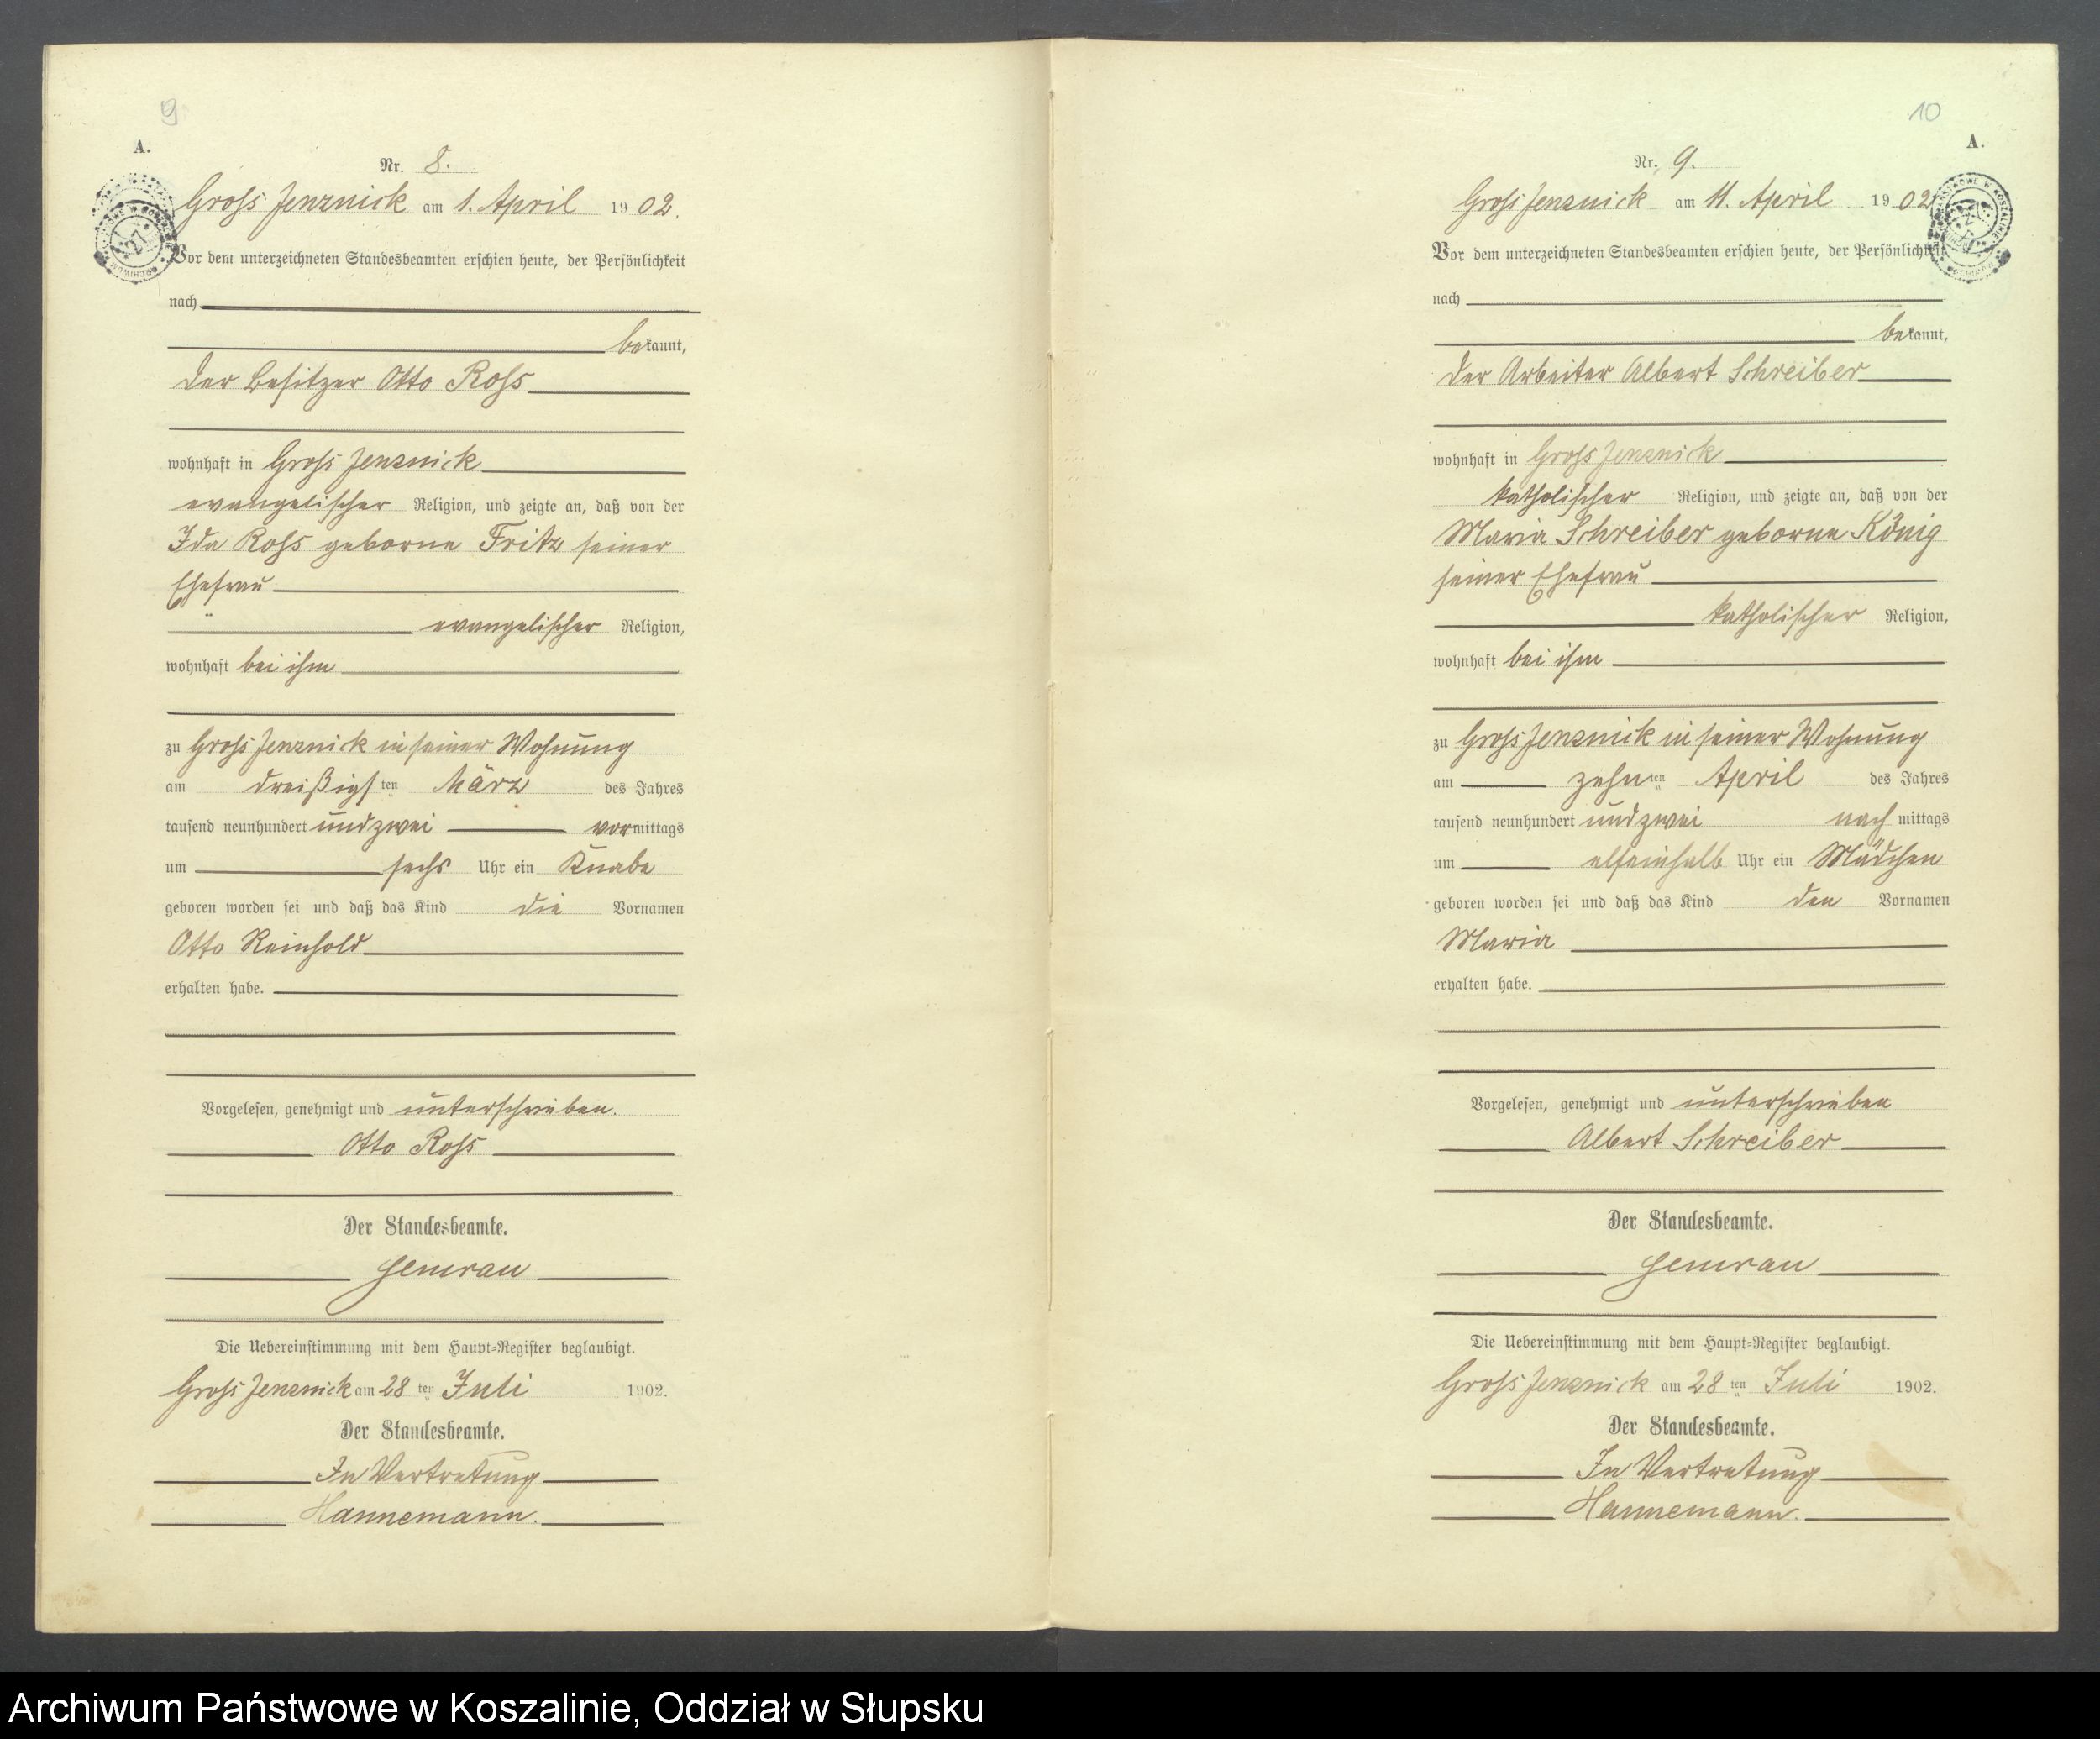 9
A.
Nr. 8.
Gross Jenznick am 1. April 1902.
Vor dem unterzeichneten Standesbeamten erschien heute, der Persönlichkeit
nach
bekannt,
der Besitzer Otto Ross
wohnhaft in Gross Jenznick
evangelischer Religion, und zeigte an, daß von der
Ida Ross geborne Fritz seiner
Ehefrau
evangelischer Religion,
wohnhaft bei ihm
zu Gross Jenznick in seiner Wohnung
am dreißigsten März des Jahres
tausend neunhundert und zwei vormittags
um sechs Uhr ein Knabe
geboren worden sei und daß das Kind die Vornamen
Otto Reinhold
erhalten habe.
Vorgelesen, genehmigt und unterschrieben.
Otto Ross
Der Standesbeamte.
Gemrau
Die Uebereinstimmung mit dem Haupt-Register beglaubigt.
Gross Jenznick am 28 ten Juli 1902.
Der Standesbeamte.
In Vertretung
Hannemann.
10
A.
Nr. 9.
Gross Jenznick am 11. April 1902
Vor dem unterzeichneten Standesbeamten erschien heute, der Persönlichkeit
nach
bekannt,
der Arbeiter Albert Schreiber
wohnhaft in Gross Jenznick
katholischer Religion, und zeigte an, daß von der
Maria Schreiber geborne König
seiner Ehefrau
katholischer Religion,
wohnhaft bei ihm
zu Gross Jenznick in seiner Wohnung
am zehnten April des Jahres
tausend neunhundert und zwei nachmittags
um elfeinhalb Uhr ein Mädchen
geboren worden sei und daß das Kind den Vornamen
Maria
erhalten habe.
Vorgelesen, genehmigt und unterschrieben
Albert Schreiber
Der Standesbeamte.
Gemrau
Die Uebereinstimmung mit dem Haupt-Register beglaubigt.
Gross Jenznick am 28 ten Juli 1902.
Der Standesbeamte.
In Vertretung
Hannemann.
Archiwum Państwowe w Koszalinie, Oddział w Słupsku